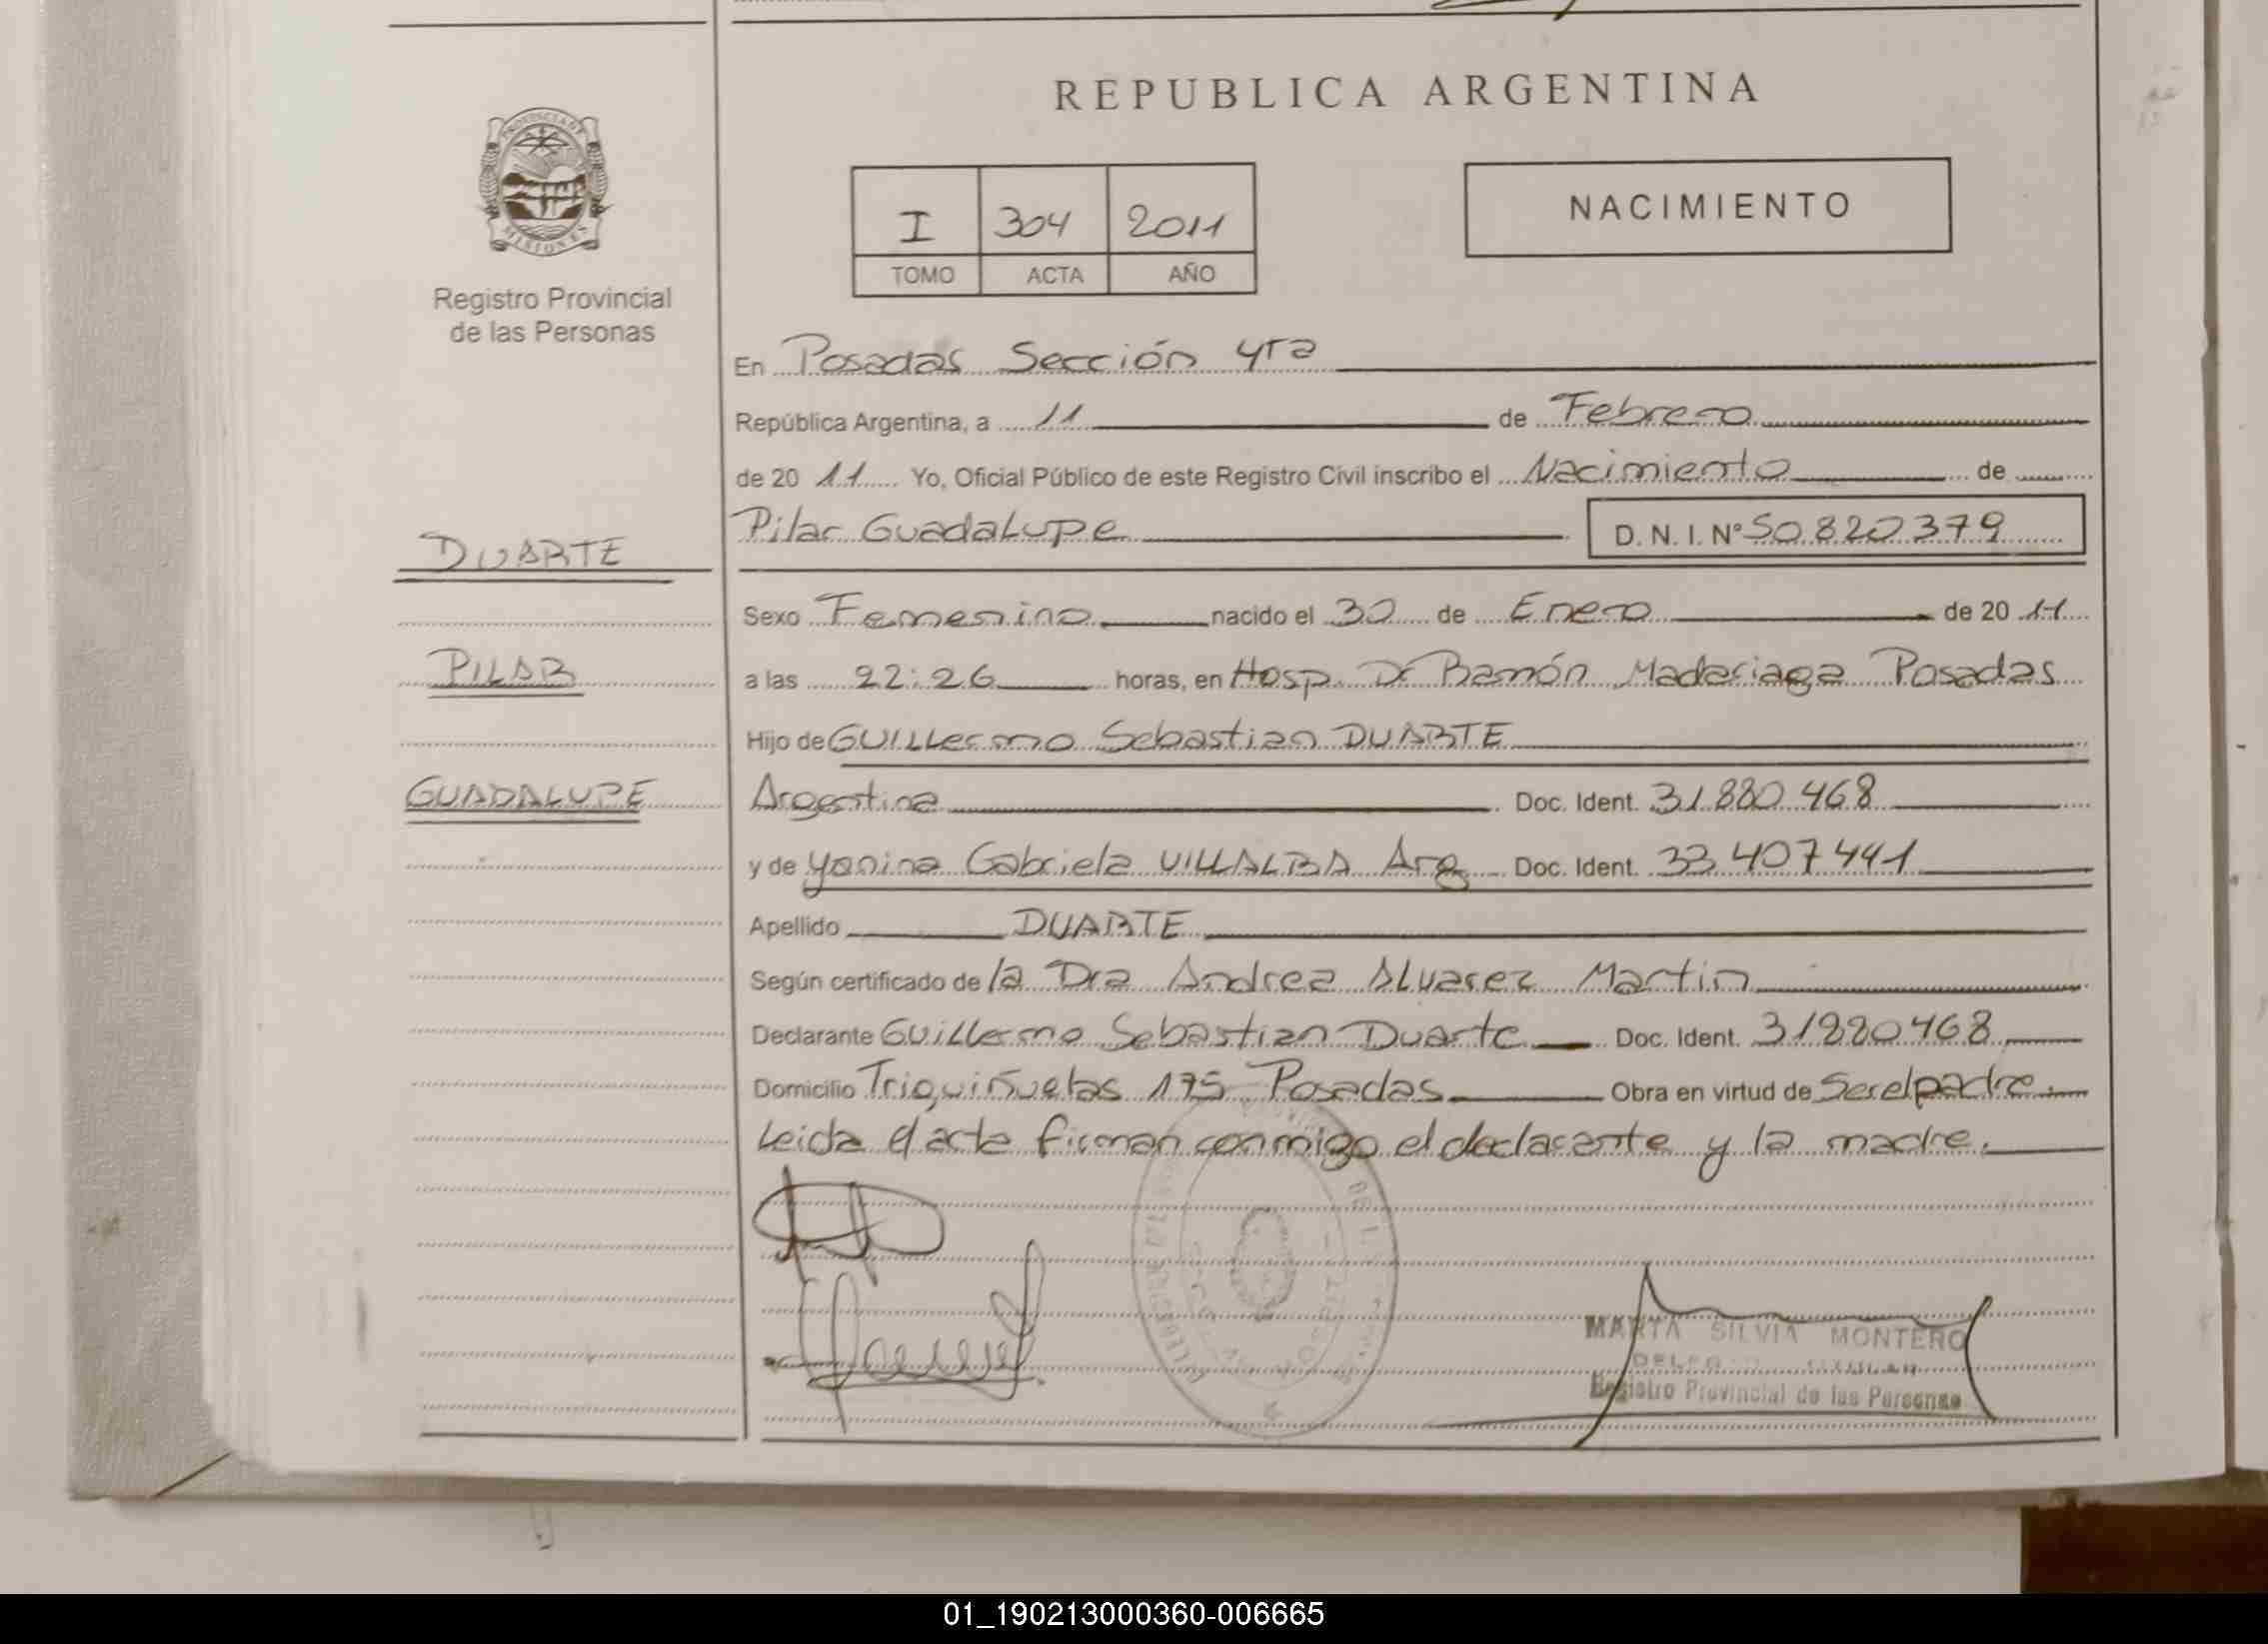 REPUBLICA ARGENTINA
PROVINCIA DE
MISIONES
Registro Provincial
de las Personas
I 304 2011
TOMO ACTA AÑO
NACIMIENTO
En Posadas Sección 4ta
República Argentina, a 11 de Febrero
de 20 11 Yo, Oficial Público de este Registro Civil inscribo el Nacimiento de
DUARTE
Pilar Guadalupe D. N. I. Nº 50.820.379
Sexo Femenino nacido el 30 de Enero de 20 11
PILAR
a las 22:26 horas, en Hosp. Dr Ramón Madariaga Posadas
Hijo de Guillermo Sebastian DUARTE
GUADALUPE
Argentina Doc. Ident. 31.880.468
y de Yanina Gabriela VILLALBA Arg Doc. Ident. 33.407.441
Apellido DUARTE
Según certificado de la Dra Andrea Alvarez Martin
Declarante Guillermo Sebastian Duarte Doc. Ident. 31880468
Domicilio Triquiñuelas 175 Posadas Obra en virtud de Ser el padre.
Leida el acta firman conmigo el declarante y la madre.
MARTA SILVIA MONTERO
Registro Provincial de las Personas
01_190213000360-006665